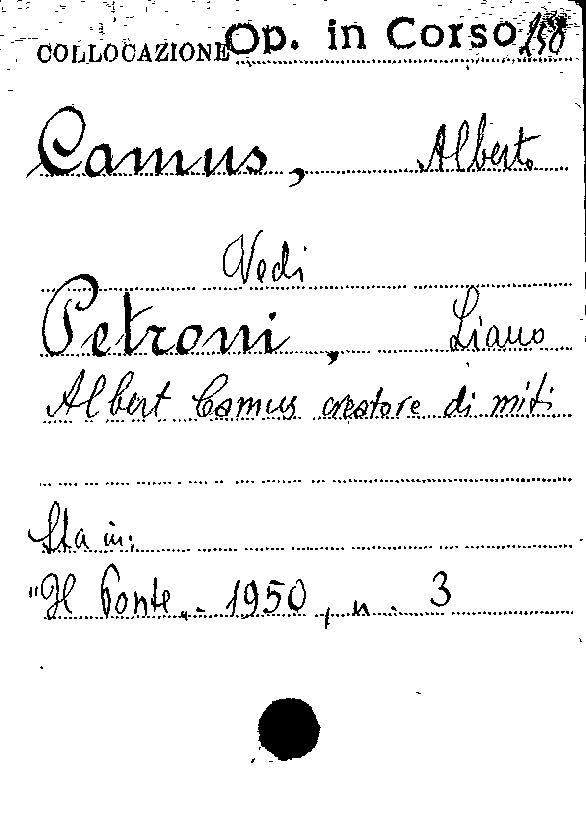 COLLOCAZIONE Op. in Corso 158
Camus, Alberto
Vedi
Petroni, Liano
Albert Camus creatore di miti
Sta in:
"Il Ponte„ - 1950, n. 3